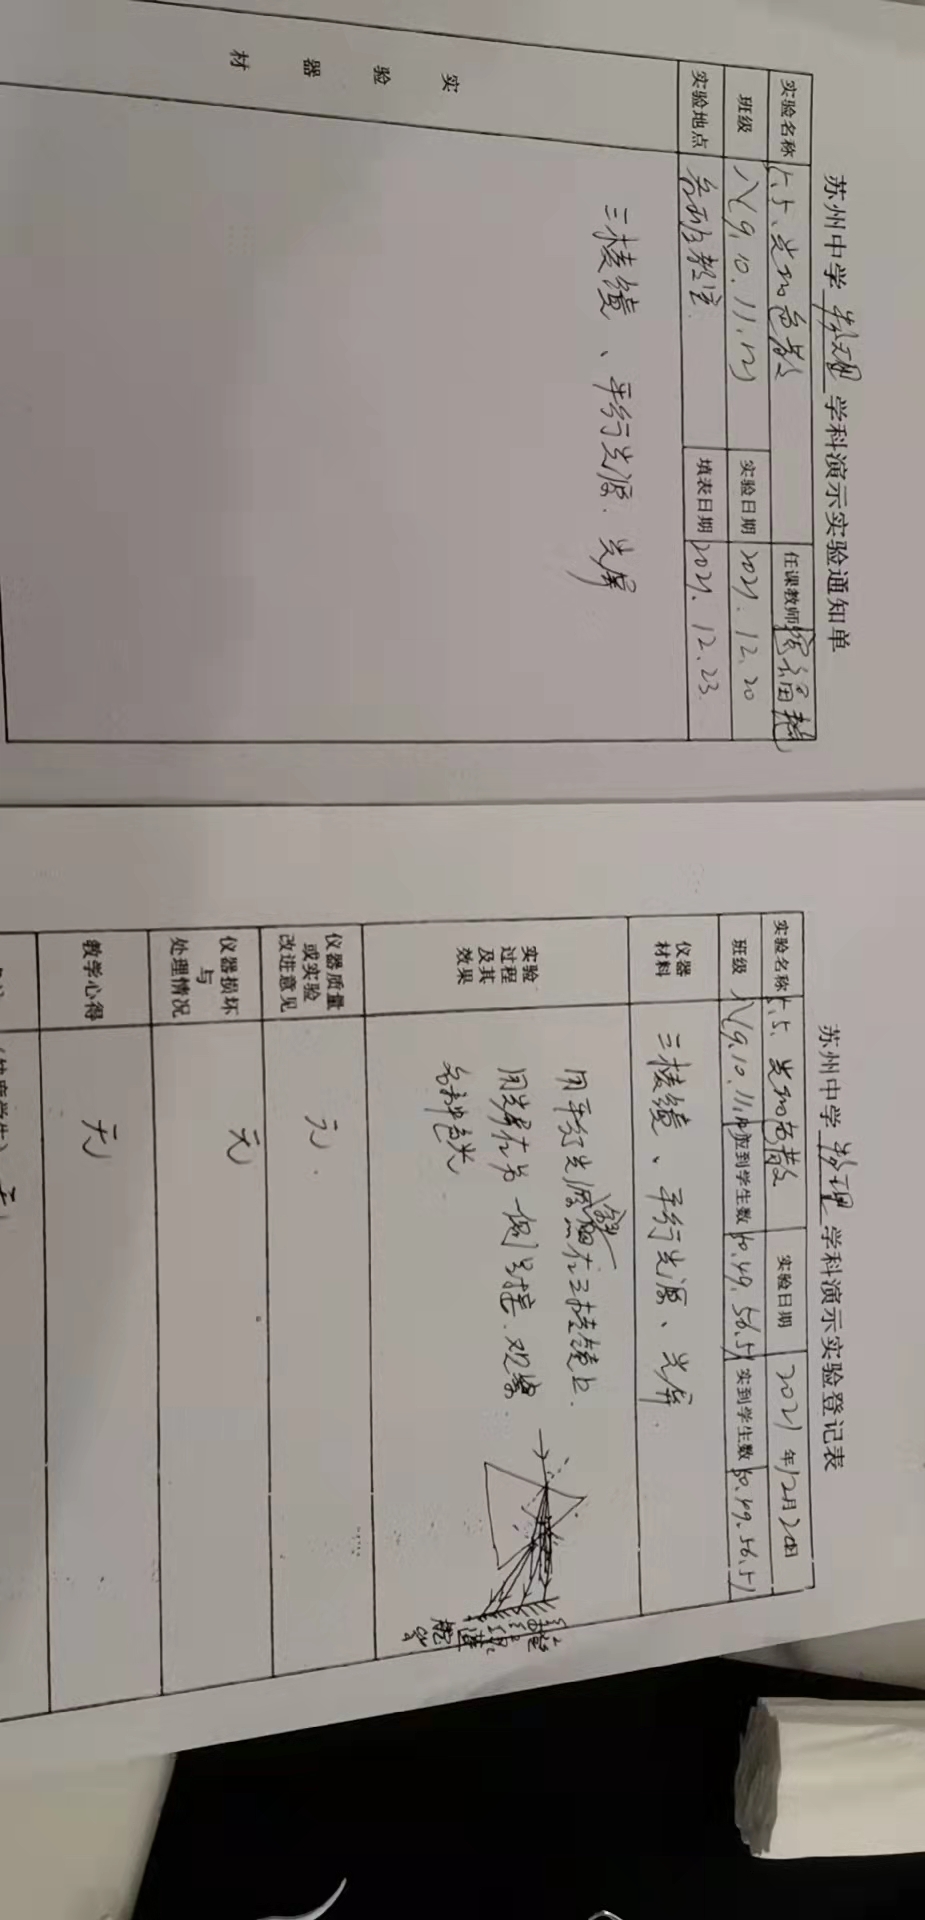 苏州中学 物理 学科演示实验通知单
实验名称 5.5、光的色散 任课教师
班级 八(9.10.11.12) 实验日期 2021.12.20
实验地点 各班教室 填表日期 2021.12.23.
实验器材
三棱镜、平行光源、光屏
苏州中学 物理 学科演示实验登记表
实验名称 5.5、光的色散 实验日期 2021年12月20日
班级 八(9.10.11.12) 应到学生数 50.49.56.51 实到学生数 50.49.56.51
仪器材料 三棱镜、平行光源、光屏.
实验过程及其效果
用平行光源照在三棱镜上.
用光屏在另一侧对接.观察
各种色光
红
橙
黄
绿
仪器质量或实验改进意见 无.
仪器损坏与处理情况 无
教学心得 无